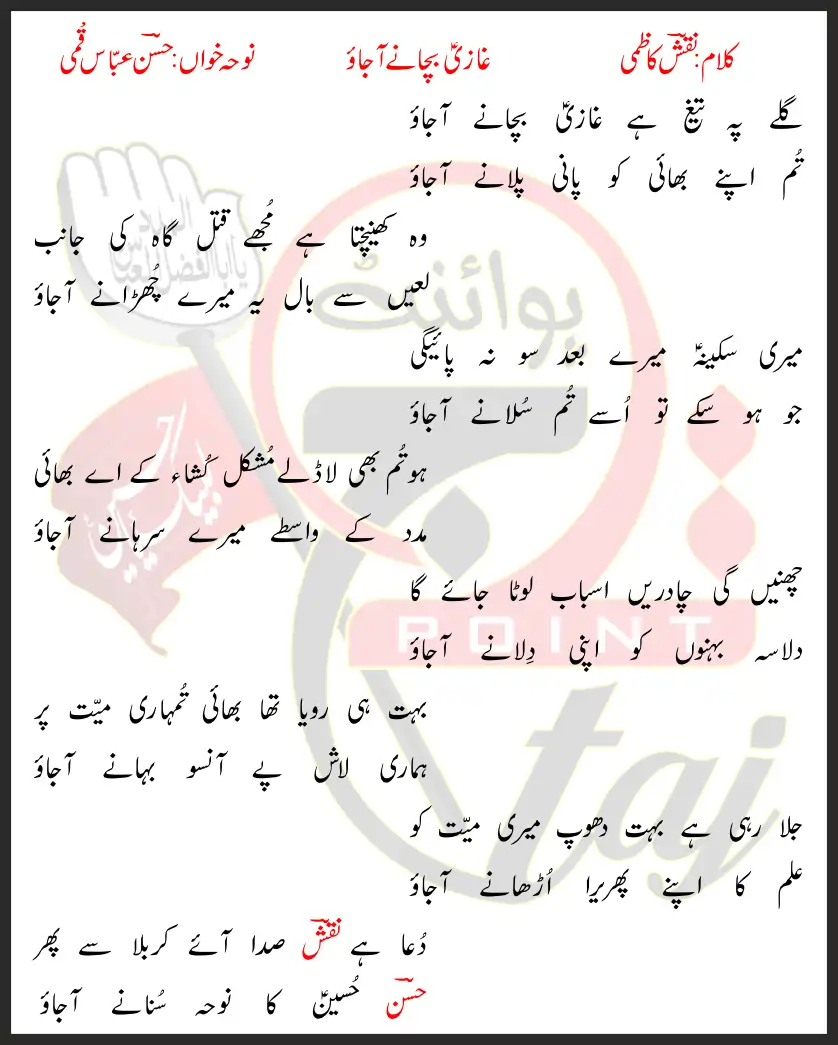 کلام: نقشؔ کاظمی غازیؑ بچانے آجاؤ نوحہ خواں: حسنؔ عبّاس قُمی
گلے پہ تیغ ہے غازیؑ بچانے آجاؤ
تُم اپنے بھائی کو پانی پلانے آجاؤ
وہ کھینچتا ہے مُجھے قتل گاہ کی جانب
لعیں سے بال یہ میرے چُھڑانے آجاؤ
میری سکینہؑ میرے بعد سو نہ پائیگی
جو ہو سکے تو اُسے تُم سُلانے آجاؤ
ہو تُم بھی لاڈلے مُشکل کُشاء کے اے بھائی
مدد کے واسطے میرے سرہانے آجاؤ
چھنیں گی چادریں اسباب لوٹا جائے گا
دلاسہ بہنوں کو اپنی دِلانے آجاؤ
بہت ہی رویا تھا بھائی تُمہاری میّت پر
ہماری لاش پے آنسو بہانے آجاؤ
جلا رہی ہے بہت دھوپ میری میّت کو
علم کا اپنے پھریرا اُڑھانے آجاؤ
دُعا ہے نقشؔ صدا آئے کربلا سے پھر
حسنؔ حُسینؑ کا نوحہ سُنانے آجاؤ
پوائنٹ
POINT
taj